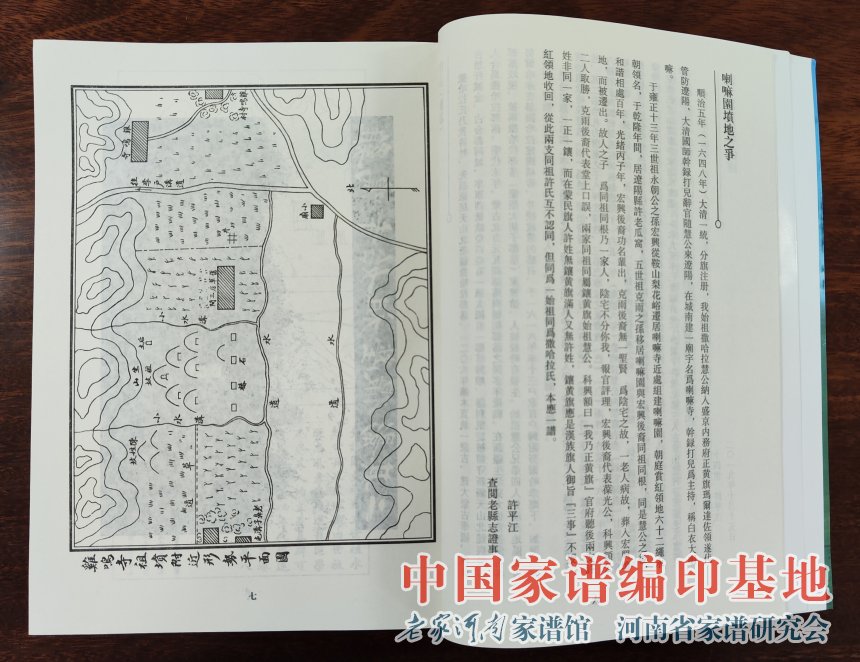 喇嘛園墳地之爭
順治五年（一六四八年）大清一統，分旗注册，我始祖撒哈拉慧公納入盛京内務府正黄旗瑪爾達佐領遂代
管防遼陽，大清國師幹録打兒辭官隨慧公來遼陽，在城南建一廟宇名爲喇嘛寺，幹録打兒爲主持，稱白衣大
嘛。
于雍正十三年三世祖水朝公之孫宏興從鞍山梨花峪遷居喇嘛寺近處組建喇嘛園，朝庭賞紅領地六十二繩
朝領名，于乾隆年間，居遼陽縣許老瓜窩，五世祖克雨之孫移居喇嘛園與宏興後裔同祖同根，同是慧公之
和諧相處百年，光緒丙子年，宏興後裔功名輩出，克雨後裔無一聖賢，爲陰宅之故，一老人病故，葬入宏
地，而被遷出。故人之子，爲同祖同根乃一家人，陰宅不分你我，報官評理，宏興後裔代表葆光公，科興
二人取勝，克雨後裔代表堂上口誤，兩家同祖同屬鑲黄旗始祖慧公，科興額曰『我乃正黄旗』官府聽後兩
姓非同一家，一正一鑲，而在蒙民旗人許姓無鑲黄旗滿人又無許姓，鑲黄旗應是漢族旗人御旨『三事』不
紅領地收回，從此兩支同祖許氏互不認同，但同爲一始祖同爲撒哈拉氏，本應一譜。
許平江
查閲老縣志證事
雞鳴寺祖墳附近形勢平面圖
北
小廟
井
小水溝
小水溝
水道
石樁
草道
七
中国家谱编印基地
老家河南家谱馆 河南省家谱研究会